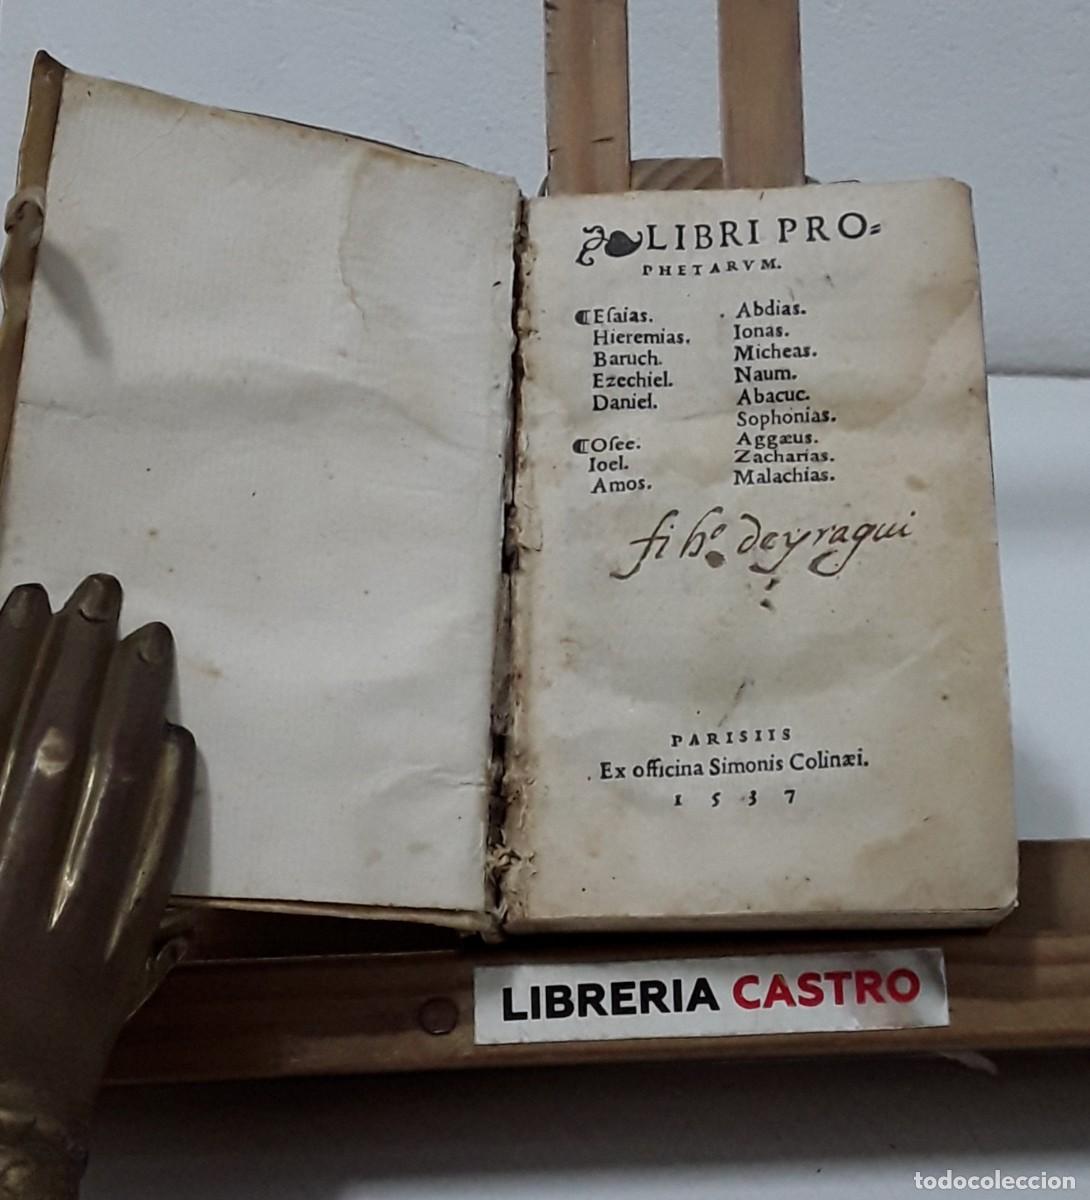 LIBRI PRO=
PHETARVM.
Eſaias.
Hieremias.
Baruch.
Ezechiel.
Daniel.
Oſee.
Ioel.
Amos.
Abdias.
Ionas.
Micheas.
Naum.
Abacuc.
Sophonias.
Aggæus.
Zacharias.
Malachias.
PARISIIS
Ex officina Simonis Colinæi.
1537
LIBRERIA CASTRO
todocoleccion